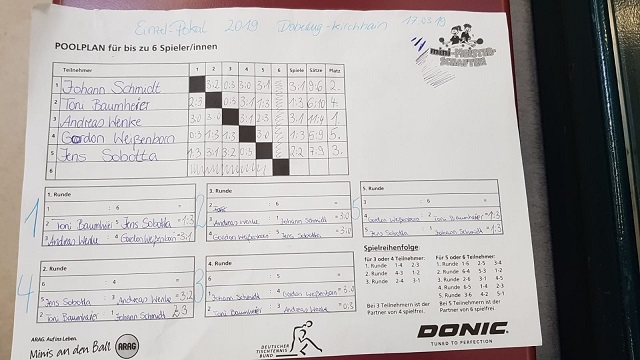 Einzel-Pokal 2019 Doberlug-Kirchhain 17.03.19
POOLPLAN für bis zu 6 Spieler/innen
mini-MEISTER-SCHAFTEN
Teilnehmer 1 2 3 4 5 6 Spiele Sätze Platz
1 Johann Schmidt 3:2 0:3 3:0 3:1 3:1 9:6 2.
2 Toni Baumheier 2:3 0:3 3:1 1:3 1:3 6:10 4.
3 Andreas Wenke 3:0 3:0 3:1 2:3 3:1 11:4 1.
4 Gordon Weißenborn 0:3 1:3 1:3 3:0 1:3 5:9 5.
5 Jens Sobotta 1:3 3:1 3:2 0:3 2:2 7:9 3.
6
1. Runde
1 : 6 =
2 Toni Baumheier 5 Jens Sobotta = 1:3
3 Andreas Wenke 4 Gordon Weißenborn = 3:1
3. Runde
: 6 =
3 Andreas Wenke 1 Johann Schmidt = 3:0
4 Gordon Weißenborn 5 Jens Sobotta = 3:0
5. Runde
3 : 6 =
4 Gordon Weißenborn 2 Toni Baumheier = 1:3
5 Jens Sobotta 1 Johann Schmidt = 1:3
2. Runde
6 4 =
5 Jens Sobotta 3 Andreas Wenke = 3:2
2 Toni Baumheier 1 Johann Schmidt 2:3
4. Runde
6 5 =
1 Johann Schmidt 4 Gordon Weißenborn = 3:0
2 Toni Baumheier 3 Andreas Wenke = 0:3
Spielreihenfolge
für 3 oder 4 Teilnehmer:
1. Runde 1-4 2-3
2. Runde 4-3 1-2
3. Runde 2-4 3-1
Bei 3 Teilnehmern ist der Partner von 4 spielfrei.
Für 5 oder 6 Teilnehmer:
1. Runde 1-6 2-5 3-4
2. Runde 6-4 5-3 1-2
3. Runde 2-6 3-1 4-5
4. Runde 6-5 1-4 2-3
5. Runde 3-6 4-2 5-1
Bei 5 Teilnehmern ist der Partner von 6 spielfrei.
ARAG. Auf ins Leben.
Minis an den Ball ARAG
DEUTSCHER TISCHTENNIS BUND
DONIC
TUNED TO PERFORMANCE